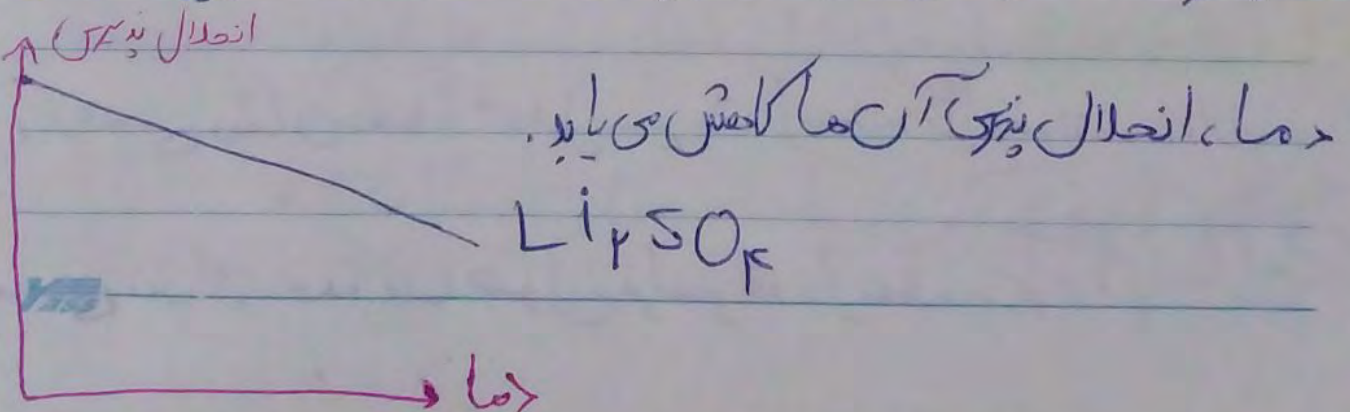 انحلال پذیری
دما، انحلال پذیری آن ها کاهش می یابد.
Li۲SO۴
دما